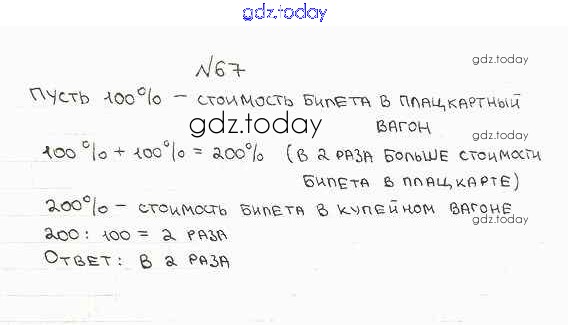 gdz.today
№67
gdz.today
Пусть 100% – стоимость билета в плацкартный
вагон
gdz.today
100% + 100% = 200% (в 2 раза больше стоимости
gdz.today
билета в плацкарте)
200% – стоимость билета в купейном вагоне
gdz.today
200 : 100 = 2 раза
Ответ: в 2 раза